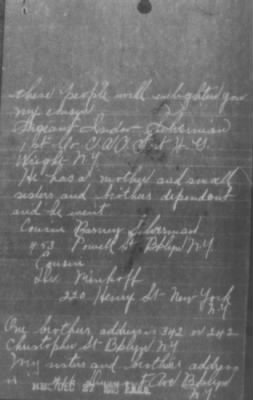 these people will enlighten you
my cousin
Sergeant Silverman
1st Co. C.A.C. Ft. H. G.
Wright NY
He has a mother and small
sisters and brothers dependent
and he went
Cousin Barney Silverman
453 Powell St Bklyn NY
Cousin
Minkoff
220 Henry St - New York
NY
One brother address 342 or 242
Christopher St Bklyn NY
My sisters and brothers address
is Ave Bklyn
NY
REC DEC 27